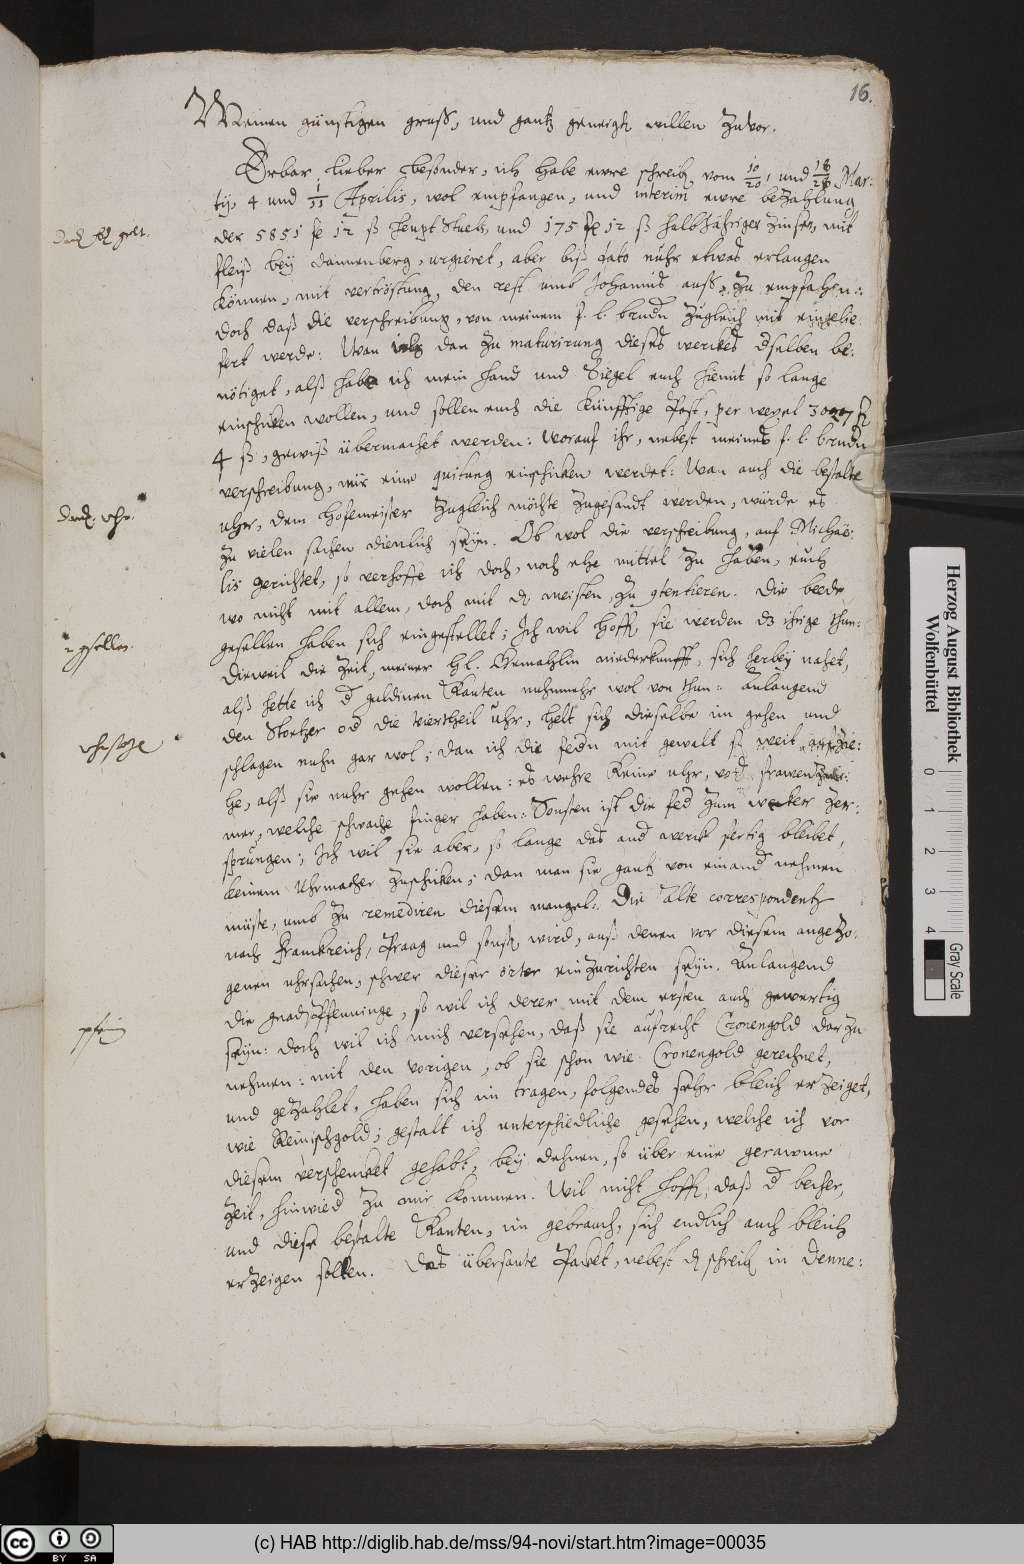 16.
Meinen günstigen gruß, und gantz geneigt willen zuvor.
Erbar, lieber besonder, ich habe ewre schreib. vom 10/20, und 18/28 Mar:
tij, 4 und 1/11 Aprilis, wol empfangen, und interim ewre bezahlung
der 5851 12 ß haupt Stuck, und 175 12 ß halbJähriger Zinsen, mit
fleiß bey Dannenberg, urgieret, aber biß dato nuhr etwas erlangen
können, mit vertröstung, den rest umb Johannis auß, zu empfahen:
doch daß die verschreibung, von meinem f. l. brudn zugleich mit eingelie:
fert werde: Wan ich dan zu maturirung dieses werckes dselben be:
nötiget, alß habe ich mein Hand und Siegel euch hiemit so lange
einschicken wollen, und sollen euch die künfftige Post, per wexel
4 ß, gewiß übermachet werden: Worauf ihr, nebest meines f. l. brudn
verschreibung, mir eine quitung einschicken werdet: Wan auch die bestalte
uhr, dem Hofemeister zugleich möchte zugesandt werden, würde es
zu vielen sachen dienlich seyn. Ob wol die verschreibung, auf Michäe:
lis gerichtet, so verhoffe ich doch, noch ehe mittel zu haben, euch
wo nicht mit allem, doch mit d meisten, zu contentieren. Die beede
gesellen haben sich eingestellet; Ich wil hoff. sie werden dz ihrige thun:
Dieweil die Zeit, meiner Hl. Gemahlin niederkunfft, sich herbey nahet,
alß hette ich d guldinen Kanten nuhnmehr wol von thun: Anlangend
den Stortzer od die Viertheil uhr, helt sich dieselbe im gehen und
schlagen nuhn gar wol; dan ich die fedn mit gewalt so weit aufzie:
he, alß sie nuhr gehen wollen: es wehre keine uhr, vor frawenZim:
mer, welche schwache finger haben: Sonsten ist die fed zum wecker zer:
sprungen; Ich wil sie aber, so lange das and werck fertig bleibet,
keinem Uhrmacher zuschicken; dan man sie gantz von einand nehmen
müste, umb zu remediren diesem mangel: Die alte correspondentz
nach Franckreich, Praag und sonst, wird, auß denen vor diesem angezo:
genen uhrsachen, schwer dieser örter einzurichten seyn. Anlangend
die gnadpffenninge, so wil ich derer mit dem ersten auch gewertig
seyn: doch wil ich mich versehen, daß sie aufrecht Cronengold darzu
nehmen: mit den vorigen, ob sie schon wie Cronengold gerechnet,
und gezahlet, haben sich im tragen, folgendes sehr bleich erzeiget,
wie Reinischgold; gestalt ich unterschiedliche gesehen, welche ich vor
diesem verschencket gehabt, bey dehnen, so über eine geraume
Zeit, hinwied zu mir kommen. Wil nicht hoff, daß d becher,
und diese bestalte Kanten, im gebrauch, sich endlich auch bleich
erzeigen sollen. Das übersante Packet, nebest d schreib in Denne:
2 gesellen.
pfenig
Herzog August Bibliothek
Wolfenbüttel
0 1 2 3 4
Gray Scale
CC BY SA
(c) HAB http://diglib.hab.de/mss/94-novi/start.htm?image=00035